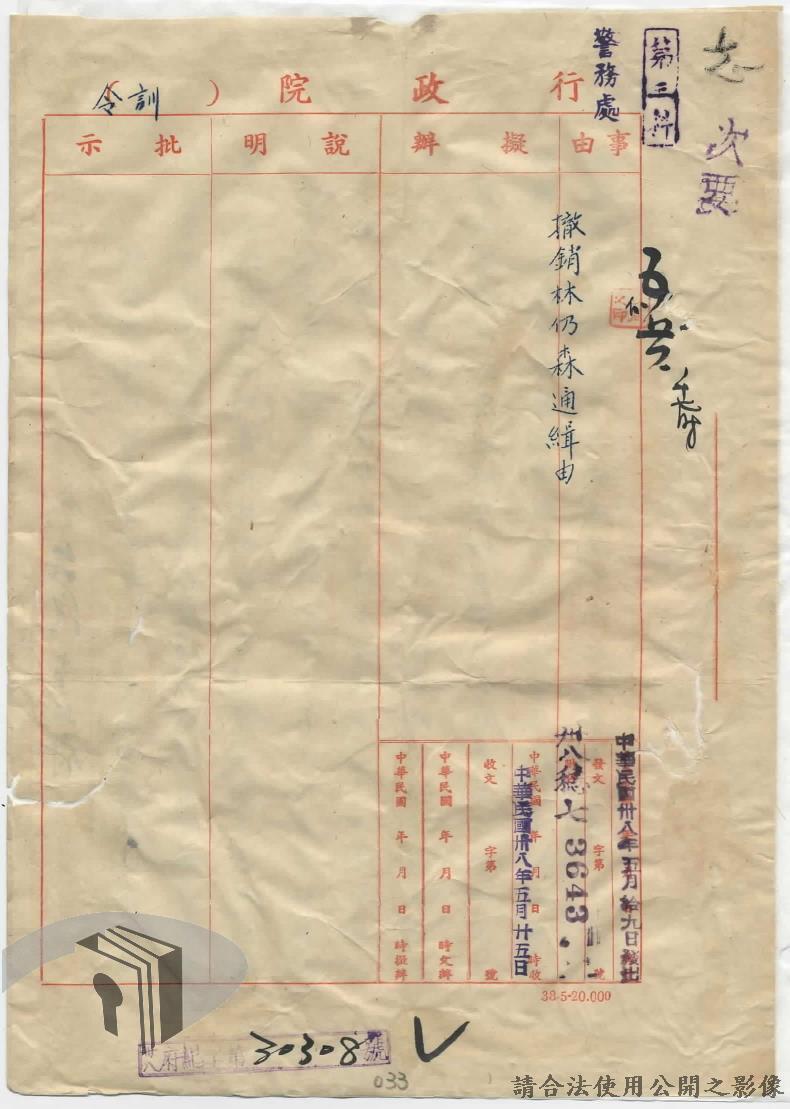 次要
第三科
警務處
行政院（訓令）
事由
擬辦
說明
批示
撤銷林仍森通緝由
中華民國卅八年五月拾九日發出
發文 字第 號
卅八 七 3643
中華民國 年 月 日 時收
中華民國卅八年五月廿五日
收文 字第 號
中華民國 年 月 日 時交辦
中華民國 年 月 日 時擬辦
38-5-20.000
府紀字第30308號
033
請合法使用公開之影像